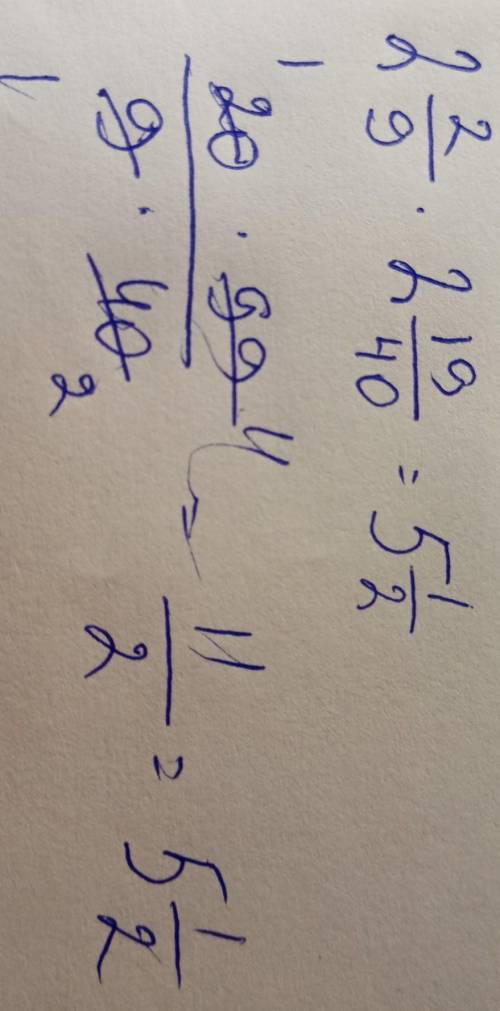 2 2/9 · 2 19/40 = 5 1/2
1 20 · 99 11 / 1 9 · 40 2 = 11/2 = 5 1/2